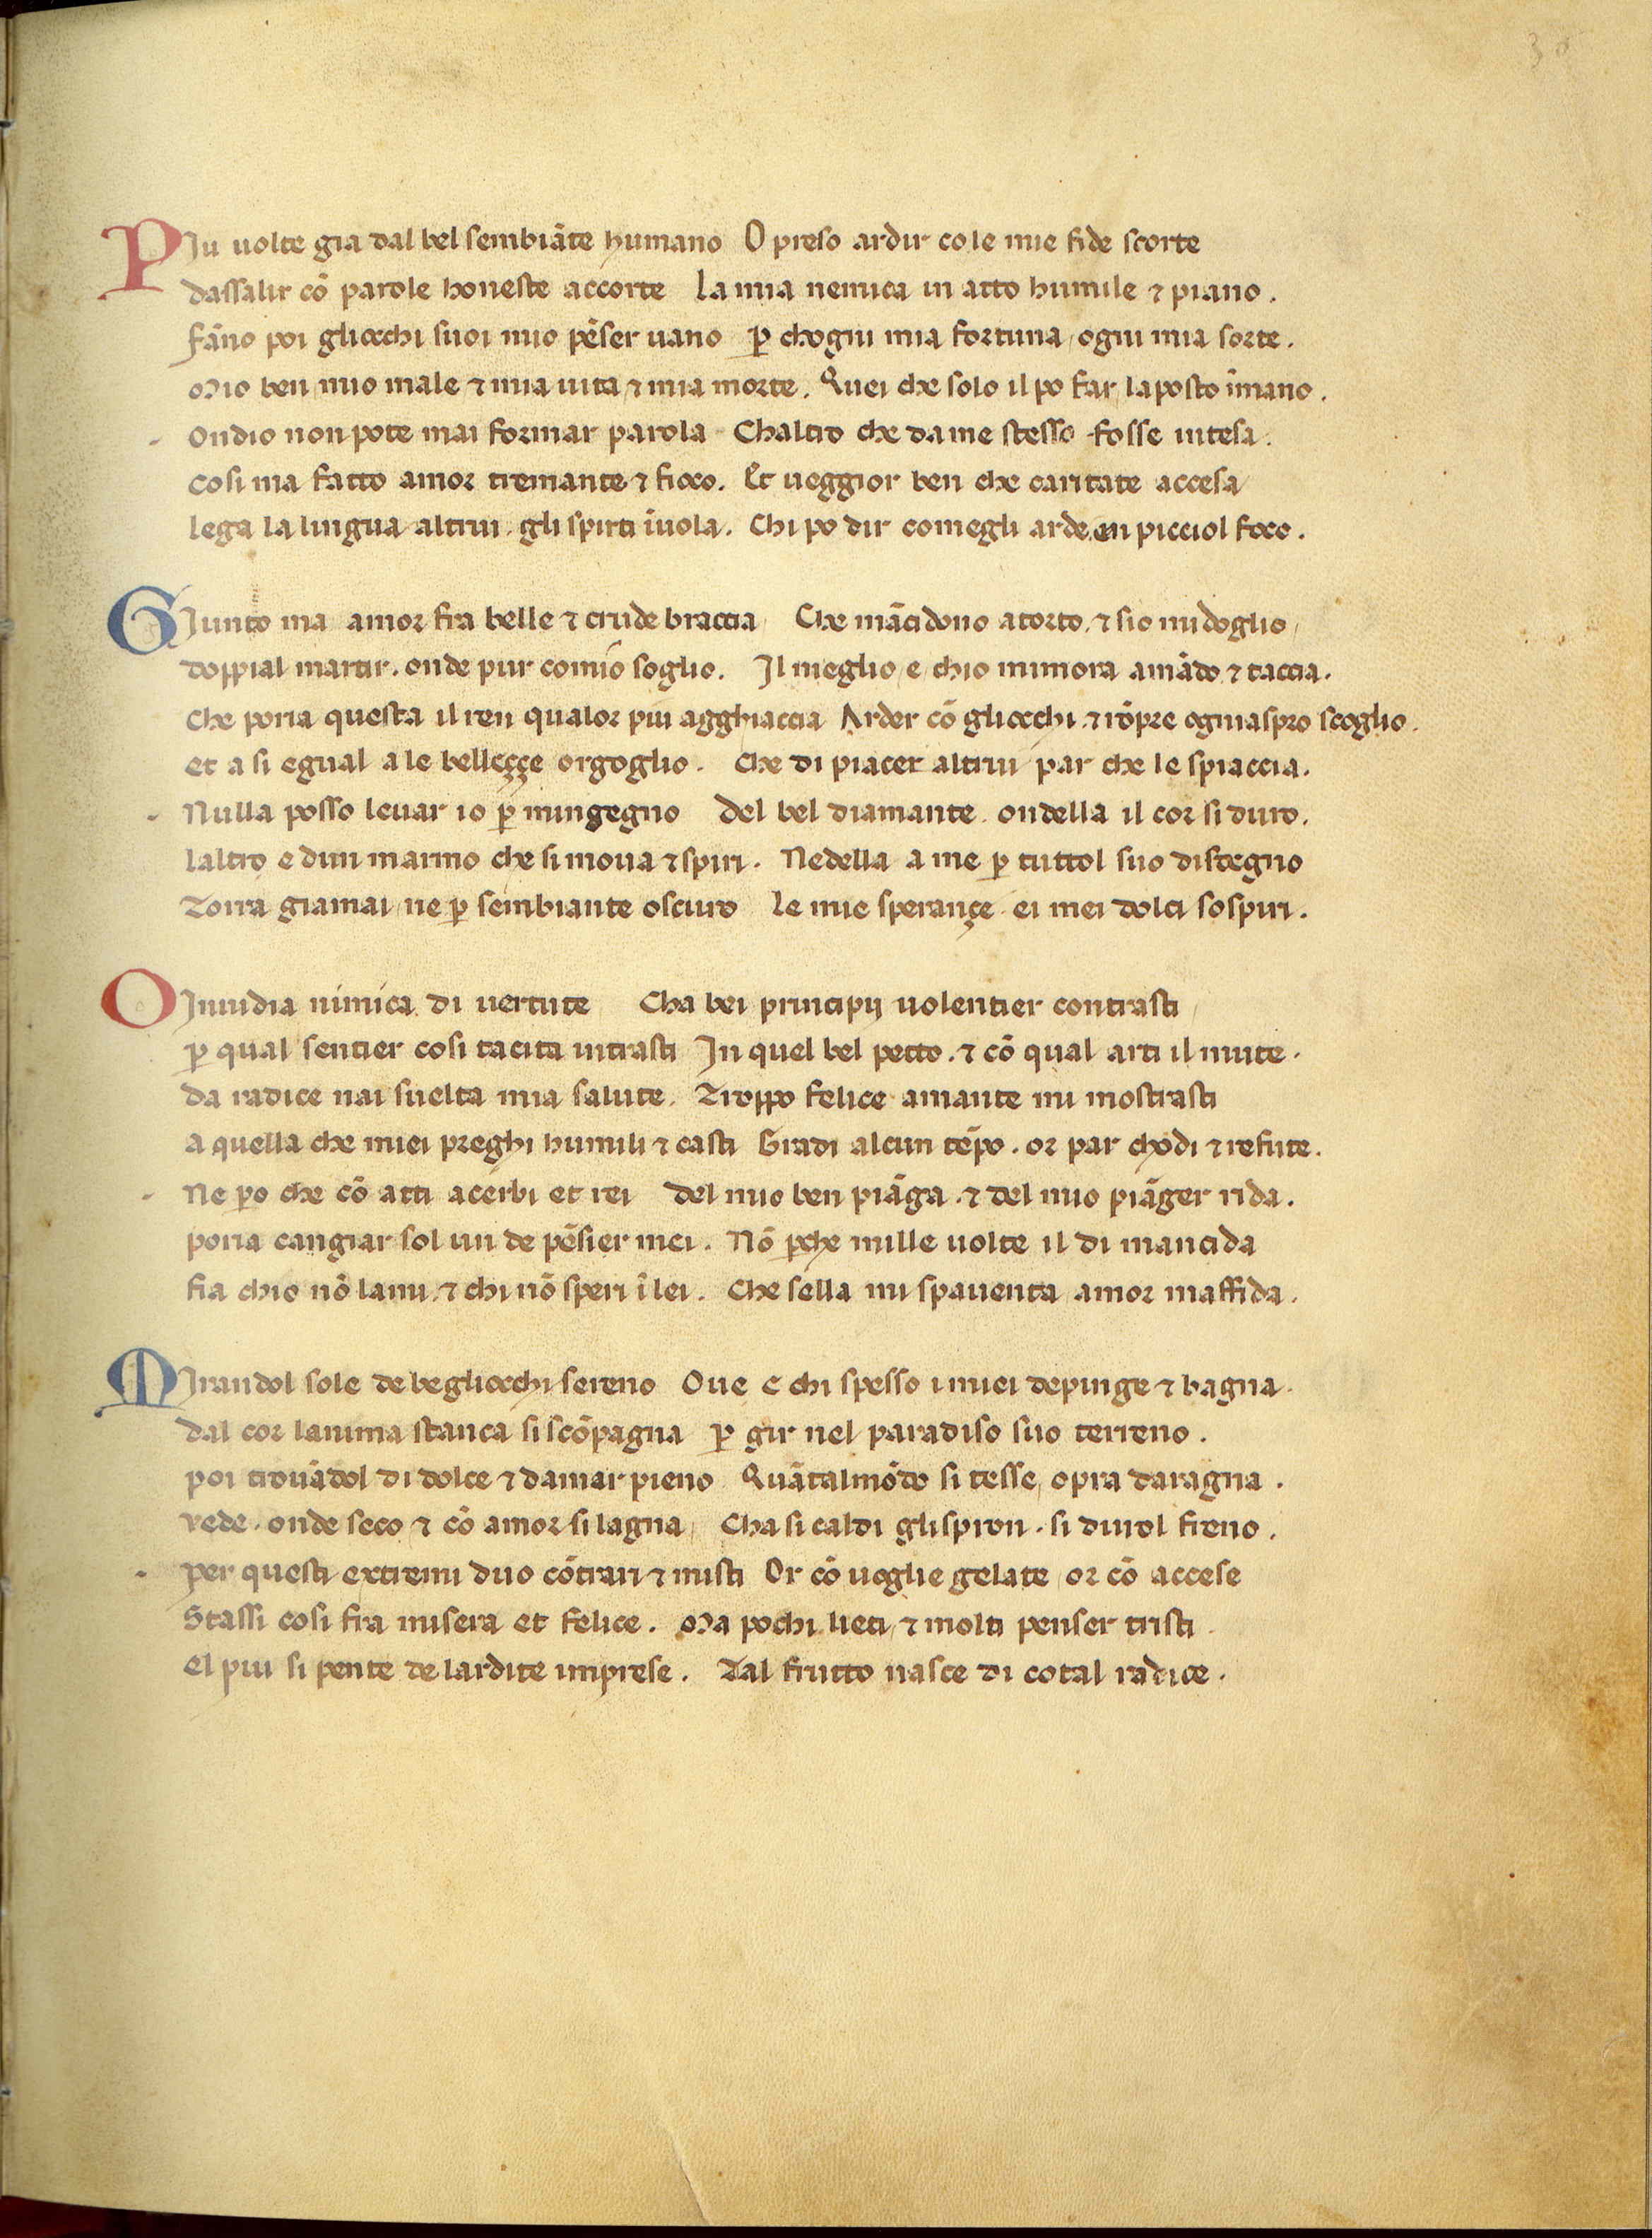 30
PIu uolte gia dal bel sembiãte humano O preso ardir cole mie fide scorte
dassalir cõ parole honeste accorte La mia nemica in atto humile ⁊ piano.
fãno poi gliocchi suoi mio pẽser uano ꝑ chogni mia fortuna, ogni mia sorte.
Mio ben, mio male, ⁊ mia uita, ⁊ mia morte. Quei che solo il po far, laposto ĩmano.
Ondio non pote mai formar parola Chaltro che dame stesso fosse intesa.
Cosi ma fatto amor tremante, ⁊ fioco. Et ueggior ben che caritate accesa
lega la lingua altrui, gli spirti ĩuola. Chi po dir comegli arde, en picciol foco.
GIunto ma amor fra belle ⁊ crude braccia, Che mãcidono atorto, ⁊ sio mi doglio,
doppial martir. onde pur comio soglio. Il meglio, e, chio mimora amãdo, ⁊ taccia.
Che poria questa il ren qualor piu agghiaccia Arder cõ gliocchi, ⁊ rõpre ogniaspro scoglio.
et a si egual a le belleççe orgoglio. Che di piacer altrui par che le spiaccia.
Nulla posso leuar io ꝑ mingegno del bel diamante, ondella il cor si duro.
laltro e dun marmo che si moua ⁊ spiri. Nedella a me ꝑ tuttol suo disdegno
Torra giamai, ne ꝑ sembiante oscuro le mie sperançe, ei mei dolci sospiri.
OInuidia nimica di uertute, Cha bei principij uolentier contrasti,
ꝑ qual sentier cosi tacita intrasti In quel bel pecto, ⁊ cõ qual arti il mute.
da radice nai suelta mia salute. Troppo felice amante mi mostrasti
a quella che miei preghi humili ⁊ casti Gradi alcun tẽpo. or par chodi ⁊ refute.
Ne ꝑo che cõ atti acerbi et rei del mio ben piãga, ⁊ del mio piãger rida.
poria cangiar sol un de pẽsier mei. Nõ ꝑche mille uolte il di mancida
fia chio nõ lami, ⁊ chi nõ speri ĩ lei. Che sella mi spauenta, amor maffida.
MIrandol sole de begliocchi sereno Oue e chi spesso i miei depinge ⁊ bagna.
dal cor lanima stanca si scõpagna ꝑ gir nel paradiso suo terreno.
poi trouãdol di dolce ⁊ damar pieno Quãtalmõdo si tesse, opra daragna.
vede. onde seco ⁊ cõ amor si lagna, Cha si caldi gli spron, si durol freno.
per questi extremi duo cõtrari ⁊ misti Or cõ uoglie gelate, or cõ accese
Stassi cosi fra misera et felice. Ma pochi lieti, ⁊ molti penser tristi.
el piu si pente de lardite imprese. Tal frutto nasce di cotal radice.